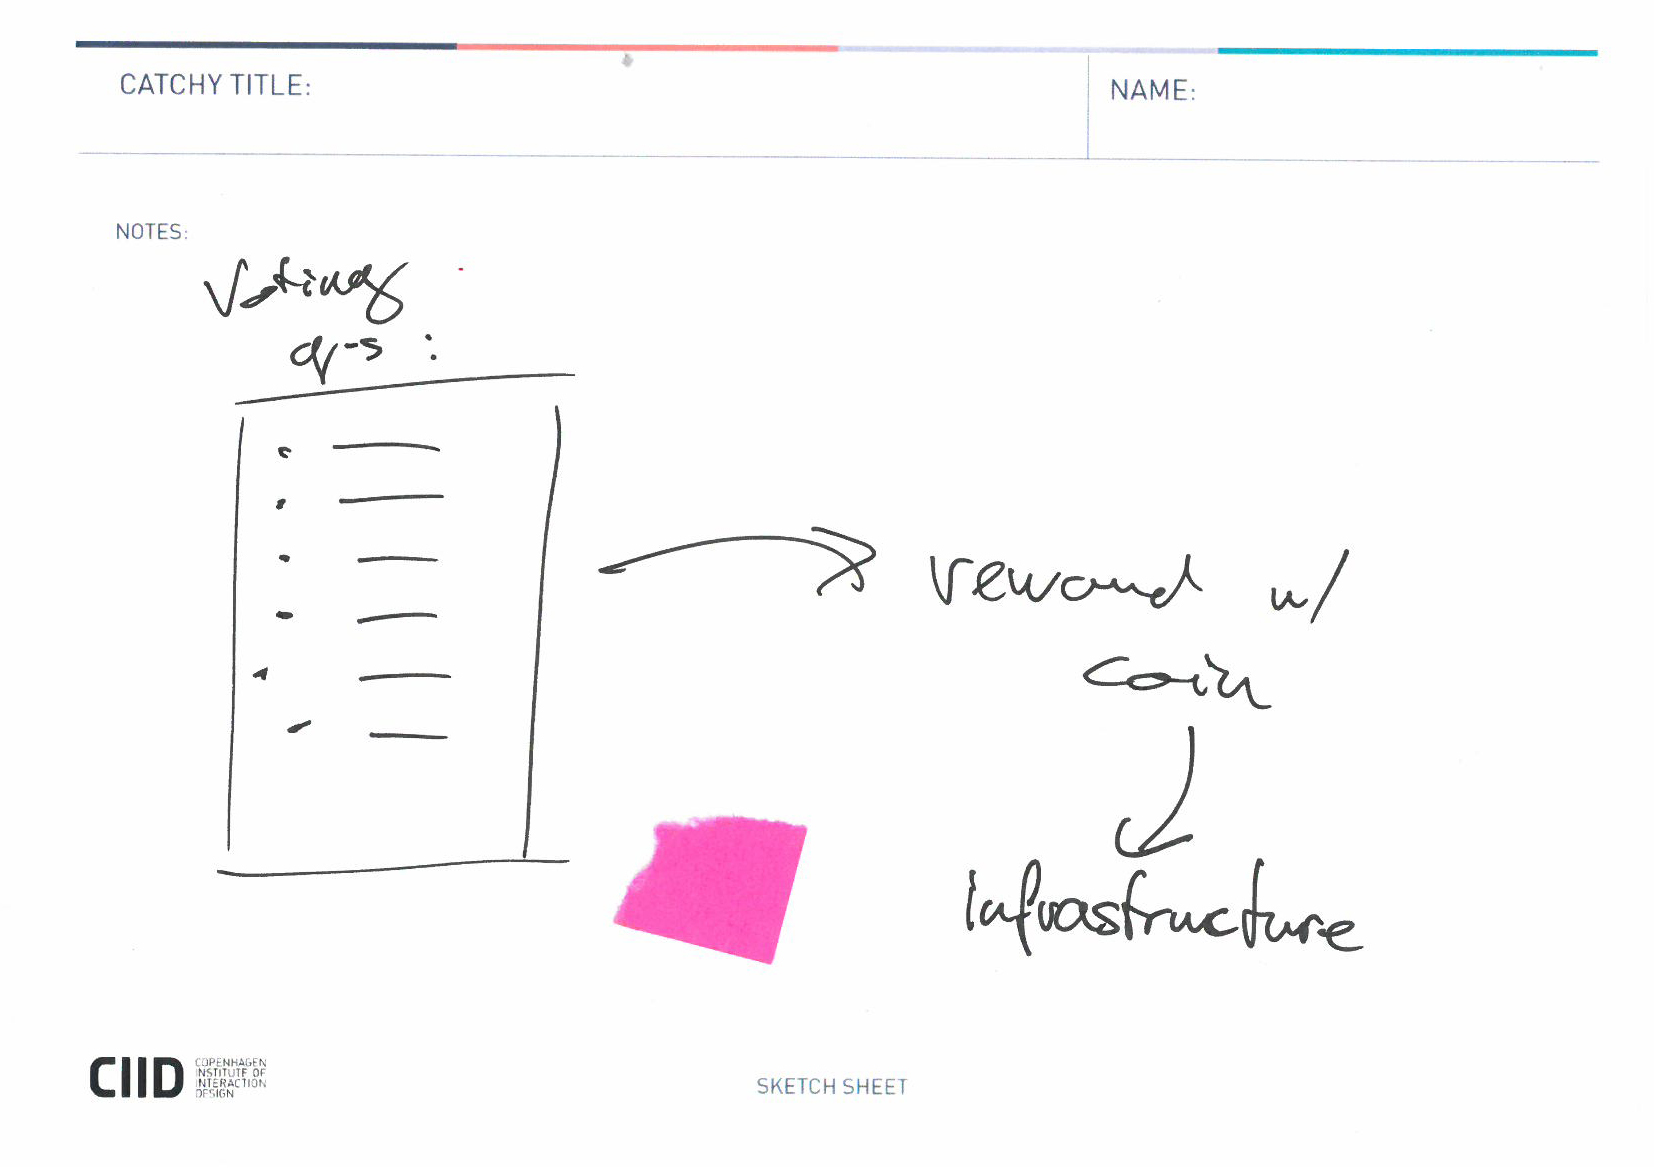 CATCHY TITLE:
NAME:
NOTES:
Voting
q-s :
reward w/
coin
infrastructure
CIID
COPENHAGEN
INSTITUTE OF
INTERACTION
DESIGN
SKETCH SHEET